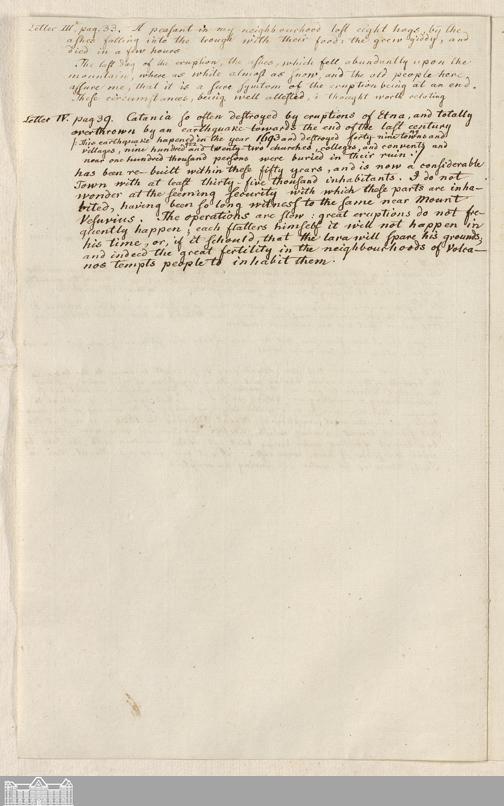 Letter III.d pag. 33. A peasant in my neighbourhood lost eight hogs, by the
ashes falling into the trough with their food, the grew giddy, and
died in a few hours
The last day of the eruption, the ashes, which fell abundantly upon the
mountain, where as white almost as snow, and the old people here
assure me, that it is a sure symtom of the eruption being at an end.
These circumstances, being well attested, i thought worth relating
Letter IV. pag 39. Catania so often destroyed by eruptions of Etna, and totally
overthrown by an earthquake towards the end of the last century
/: This earthquake hapened in the year 1693 and destroyed forty nine towns and
villages, nine hundred and twenty two churches, colleges, and convents and
near one hundred thousand persons were buried in their ruin :/
has been re-built within these fifty years, and is now a considerable
Town with at least thirty-five thousand inhabitants. I do not
wonder at the seeming security with which these parts are inha-
bited, having been so long witness to the same near Mount
Vesuvius. The operations are slow: great eruptions do not fre-
quently happen; each flatters himself it well not happen in
his time, or, if it schould, that the lava will spare his grounds;
and indeed the great fertility in the neighbourhoods of Volca-
nos tempts people to inhabit them.